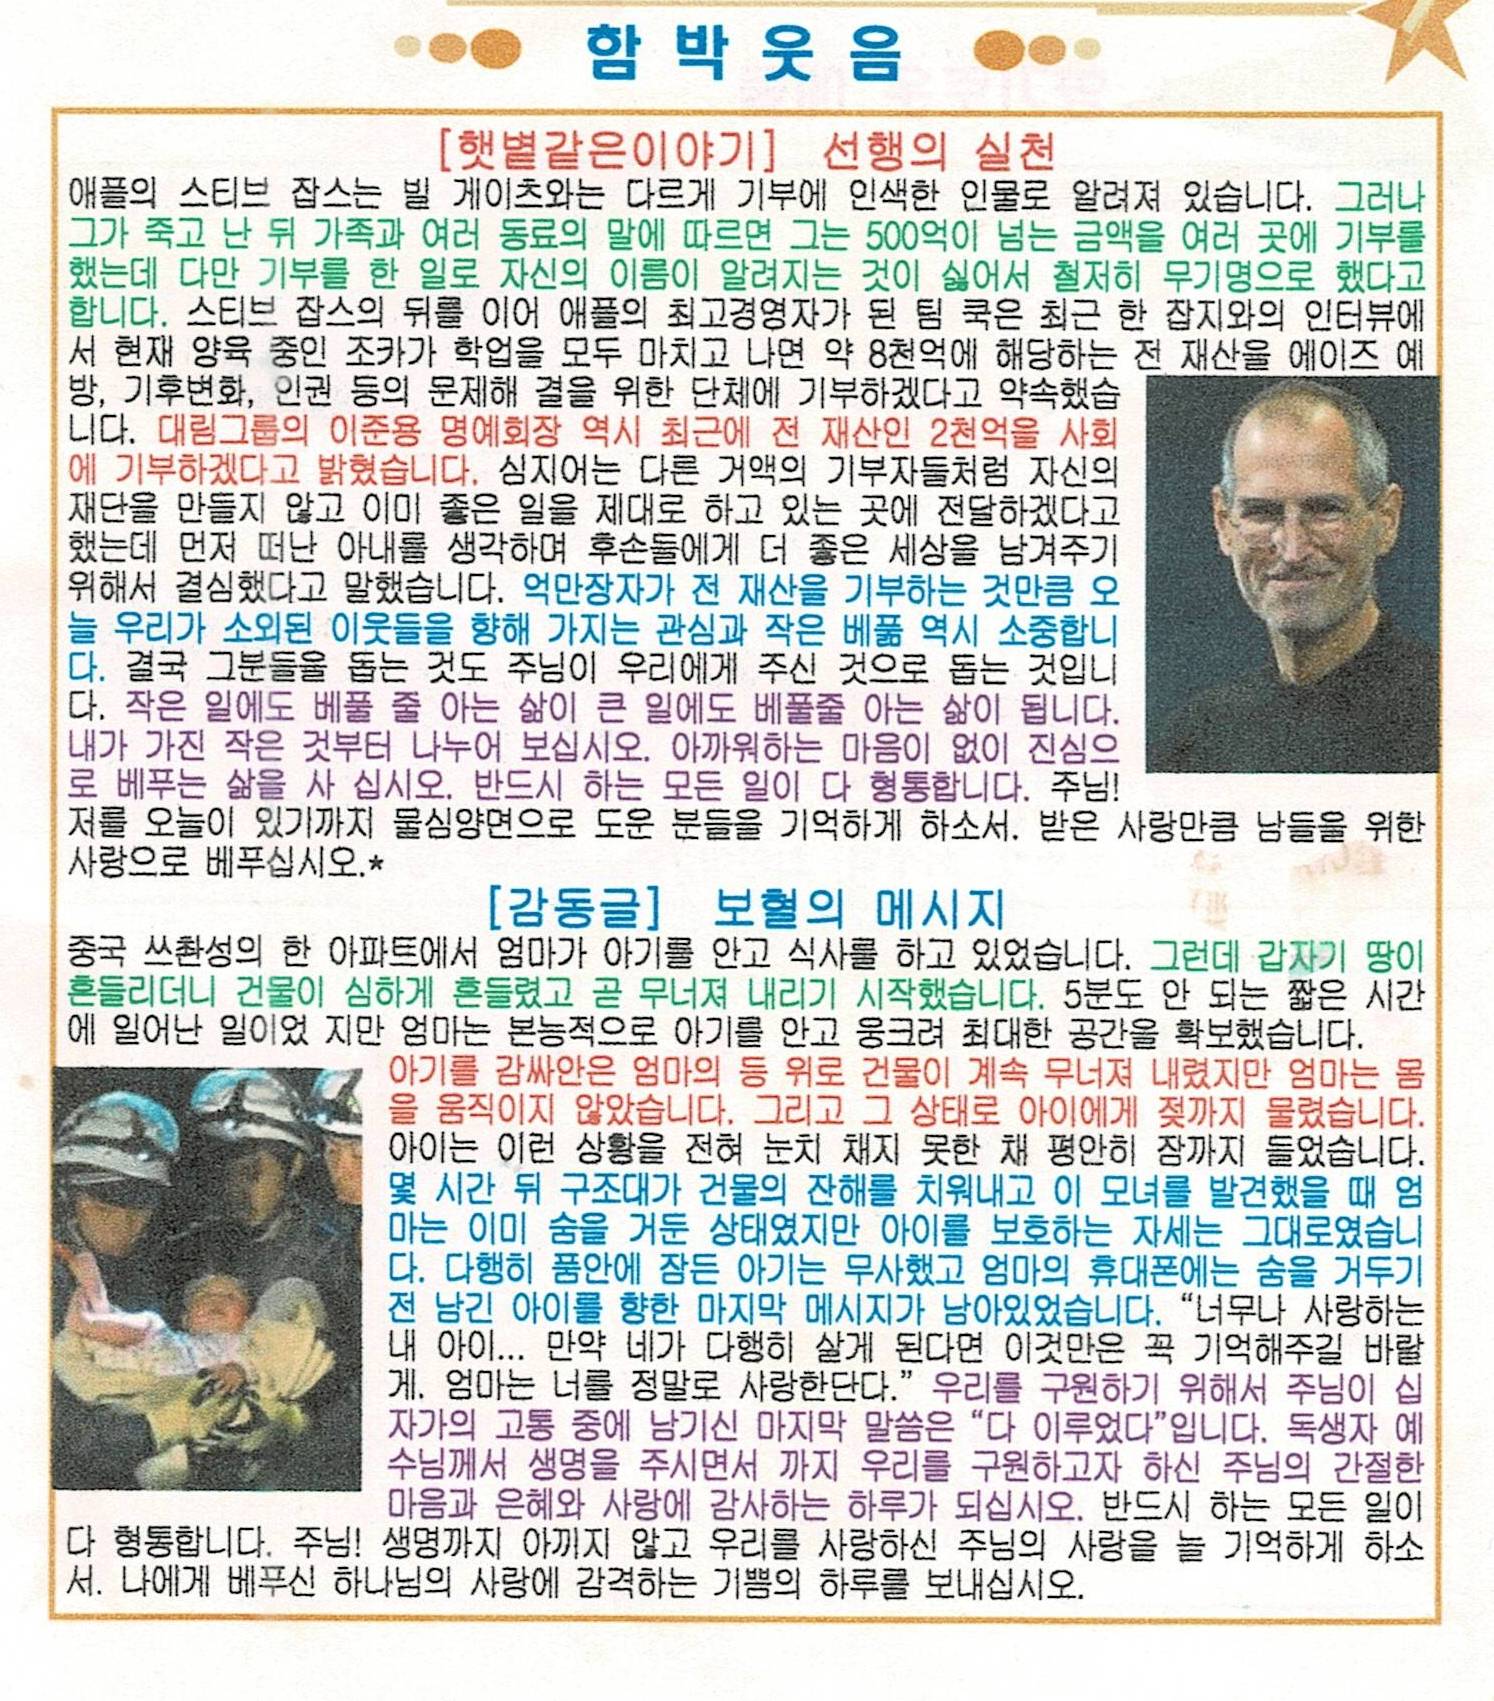 함박웃음
[햇볕같은이야기] 선행의 실천
애플의 스티브 잡스는 빌 게이츠와는 다르게 기부에 인색한 인물로 알려져 있습니다. 그러나
그가 죽고 난 뒤 가족과 여러 동료의 말에 따르면 그는 500억이 넘는 금액을 여러 곳에 기부를
했는데 다만 기부를 한 일로 자신의 이름이 알려지는 것이 싫어서 철저히 무기명으로 했다고
합니다. 스티브 잡스의 뒤를 이어 애플의 최고경영자가 된 팀 쿡은 최근 한 잡지와의 인터뷰에
서 현재 양육 중인 조카가 학업을 모두 마치고 나면 약 8천억에 해당하는 전 재산을 에이즈 예
방, 기후변화, 인권 등의 문제해 결을 위한 단체에 기부하겠다고 약속했습
니다. 대림그룹의 이준용 명예회장 역시 최근에 전 재산인 2천억을 사회
에 기부하겠다고 밝혔습니다. 심지어는 다른 거액의 기부자들처럼 자신의
재단을 만들지 않고 이미 좋은 일을 제대로 하고 있는 곳에 전달하겠다고
했는데 먼저 떠난 아내를 생각하며 후손들에게 더 좋은 세상을 남겨주기
위해서 결심했다고 말했습니다. 억만장자가 전 재산을 기부하는 것만큼 오
늘 우리가 소외된 이웃들을 향해 가지는 관심과 작은 베풂 역시 소중합니
다. 결국 그분들을 돕는 것도 주님이 우리에게 주신 것으로 돕는 것입니
다. 작은 일에도 베풀 줄 아는 삶이 큰 일에도 베풀줄 아는 삶이 됩니다.
내가 가진 작은 것부터 나누어 보십시오. 아까워하는 마음이 없이 진심으
로 베푸는 삶을 사 십시오. 반드시 하는 모든 일이 다 형통합니다. 주님!
저를 오늘이 있기까지 물심양면으로 도운 분들을 기억하게 하소서. 받은 사랑만큼 남들을 위한
사랑으로 베푸십시오.*
[감동글] 보혈의 메시지
중국 쓰촨성의 한 아파트에서 엄마가 아기를 안고 식사를 하고 있었습니다. 그런데 갑자기 땅이
흔들리더니 건물이 심하게 흔들렸고 곧 무너져 내리기 시작했습니다. 5분도 안 되는 짧은 시간
에 일어난 일이었 지만 엄마는 본능적으로 아기를 안고 웅크려 최대한 공간을 확보했습니다.
아기를 감싸안은 엄마의 등 위로 건물이 계속 무너져 내렸지만 엄마는 몸
을 움직이지 않았습니다. 그리고 그 상태로 아이에게 젖까지 물렸습니다.
아이는 이런 상황을 전혀 눈치 채지 못한 채 평안히 잠까지 들었습니다.
몇 시간 뒤 구조대가 건물의 잔해를 치워내고 이 모녀를 발견했을 때 엄
마는 이미 숨을 거둔 상태였지만 아이를 보호하는 자세는 그대로였습니
다. 다행히 품안에 잠든 아기는 무사했고 엄마의 휴대폰에는 숨을 거두기
전 남긴 아이를 향한 마지막 메시지가 남아있었습니다. “너무나 사랑하는
내 아이... 만약 네가 다행히 살게 된다면 이것만은 꼭 기억해주길 바랄
게. 엄마는 너를 정말로 사랑한단다.” 우리를 구원하기 위해서 주님이 십
자가의 고통 중에 남기신 마지막 말씀은 “다 이루었다”입니다. 독생자 예
수님께서 생명을 주시면서 까지 우리를 구원하고자 하신 주님의 간절한
마음과 은혜와 사랑에 감사하는 하루가 되십시오. 반드시 하는 모든 일이
다 형통합니다. 주님! 생명까지 아끼지 않고 우리를 사랑하신 주님의 사랑을 늘 기억하게 하소
서. 나에게 베푸신 하나님의 사랑에 감격하는 기쁨의 하루를 보내십시오.